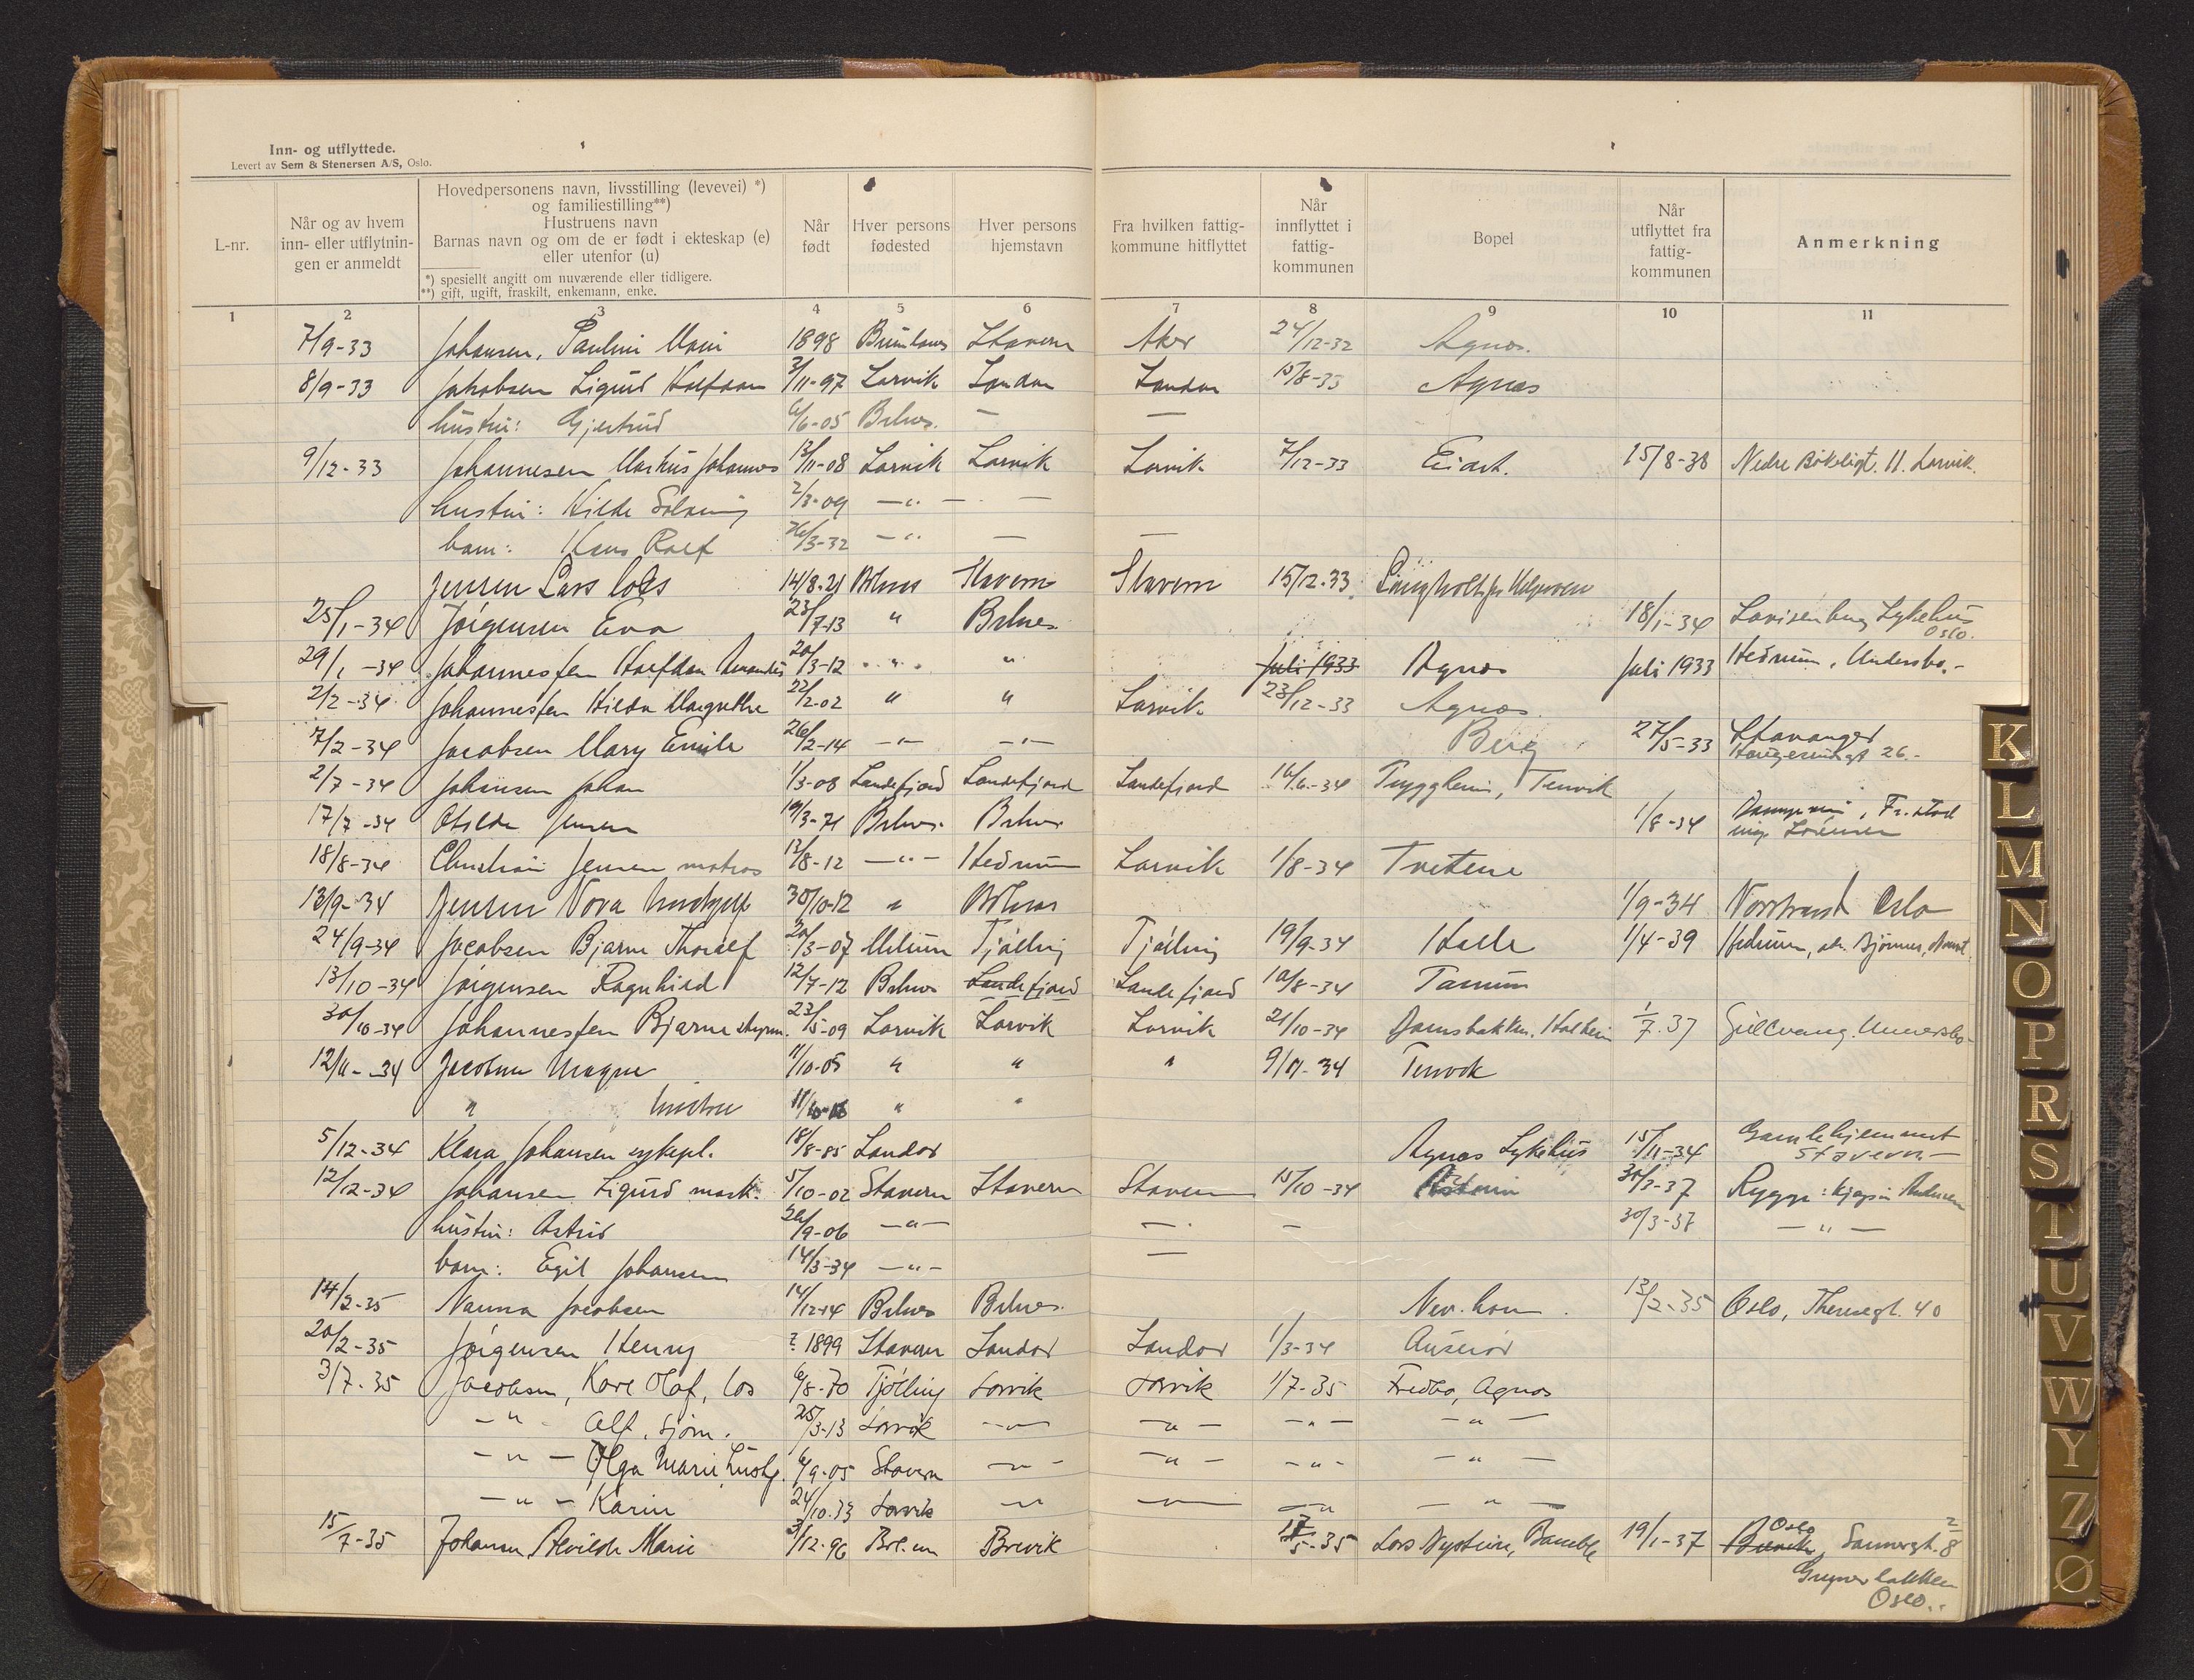 Inn- og utflyttede.
Levert av Sem & Stenersen A/S, Oslo.
L-nr.
Når og av hvem inn- eller utflytnin-gen er anmeldt
Hovedpersonens navn, livsstilling (levevei) *)
og familiestilling**)
Hustruens navn
Barnas navn og om de er født i ekteskap (e)
eller utenfor (u)
*) spesiellt angitt om nuværende eller tidligere.
**) gift, ugift, fraskilt, enkemann, enke.
Når født
Hver persons fødested
Hver persons hjemstavn
Fra hvilken fattig-kommune hitflyttet
Når innflyttet i fattig-kommunen
Bopel
Når utflyttet fra fattig-kommunen
Anmerkning
1 2 3 4 5 6 7 8 9 10 11
7/9-33 Johansen, Pauline Marie 1898 Brunlanes Stavern Aker 24/12-32 Agnes.
8/9-33 Jakobsen Sigurd Halfdan 3/11-97 Larvik Sandar Sandar 15/8-33 Agnes
hustru: Gjertrud 6/6-05 Brlnes. — —
9/12-33 Johannesen Markus Johannes 13/11-08 Larvik Larvik Larvik 7/12-33 15/8-38 Nedre Bøkeligt. 11. Larvik.
hustru: Hilde Solveig 2/3-09 —"— —
barn: Hans Rolf 26/3-32 —"— — —
Jensen Lars los 14/8-21 Brlnes Stavern Stavern 15/12-33
25/1-34 Jørgensen Eva 23/7-13 " Brlnes 18/1-34 Lovisenberg Sykehus Oslo.
29/1-34 Johannessen Halfdan 20/3-12 " " Juli 1933 Agnes Juli 1933 Hedrum,
2/2-34 Johannessen Hilda Margrethe 22/2-02 " " Larvik 23/12-33 Agnes
7/2-34 Jacobsen Mary Emilie 26/2-14 —"— —"— Berg 27/5-33 Stavanger
Haugesundgt 26.-
2/7-34 Johansen Johan 1/3-08 Sandefjord Sandefjord Sandefjord 16/6-34 Tryggheim, Tenvik
17/7-34 Jensen 19/3-71 Brlnes. Brlnes 1/8-34 Fr.stad
18/8-34 Christian Jensen matros 13/8-12 —"— Hedrum Larvik 1/8-34 Tvetene
13/9-34 Jensen Nora 30/10-12 " Brlnes 1/9-34 Nordstrand Oslo
24/9-34 Jacobsen Bjarne Thoralf 20/3-07 Tjølling Tjølling 19/9-34 Halle 1/4-39 Hedrum,
13/10-34 Jørgensen Ragnhild 12/7-12 Brlnes Sandefjord Sandefjord 10/8-34 Tanum
30/10-34 Johannessen Bjarne styrm. 23/5-09 Larvik Larvik Larvik 21/10-34 1/7-37
12/11-34 Jacobsen Magna 11/10-05 " " " 9/11-34 Tenvik
" hustru 11/10 " "
5/12-34 Klara Johansen sykepl. 18/8-85 Sandar Agnes Sykehus 15/11-34 Gamlehjemmet
Stavern.—
12/12-34 Johansen Sigurd mask. 5/10-02 Stavern Stavern Stavern 15/10-34 30/3-37 Rygge:
hustru: Astrid 26/9-06 —"— — — 30/3-37 —"—
barn: Egil Johansen 14/3-34 —"— —
14/2-35 Nanna Jacobsen 14/12-14 Brlnes Brlnes. Nevlhavn 13/2-35 Oslo, Theresegt. 40
20/2-35 Jørgensen Henry ? 1899 Stavern Sandar Sandar 1/3-34
3/7-35 Jacobsen, Kare Olaf, los 6/8-70 Tjølling Larvik Larvik 1/7-35 Fredbo, Agnes
—"— Alf, sjøm. 25/3-13 Larvik —"— —"— —"— —"—
—"— Olga Marie hush. 6/9-05 Stavern —"— —"— —"— —"—
—"— Karin 24/10.33 Larvik —"— — —"— —"—
15/7-35 Johansen, Alvilde Marie 3/12-96 Brevik 5-35 Lars Nystein, Bamble 19/1-37 Brevik Oslo Sannergt. 8
Grunerløkken
Oslo..
K
L
M
N
O
P
R
S
T
U
V
W
Y
Z
Ø